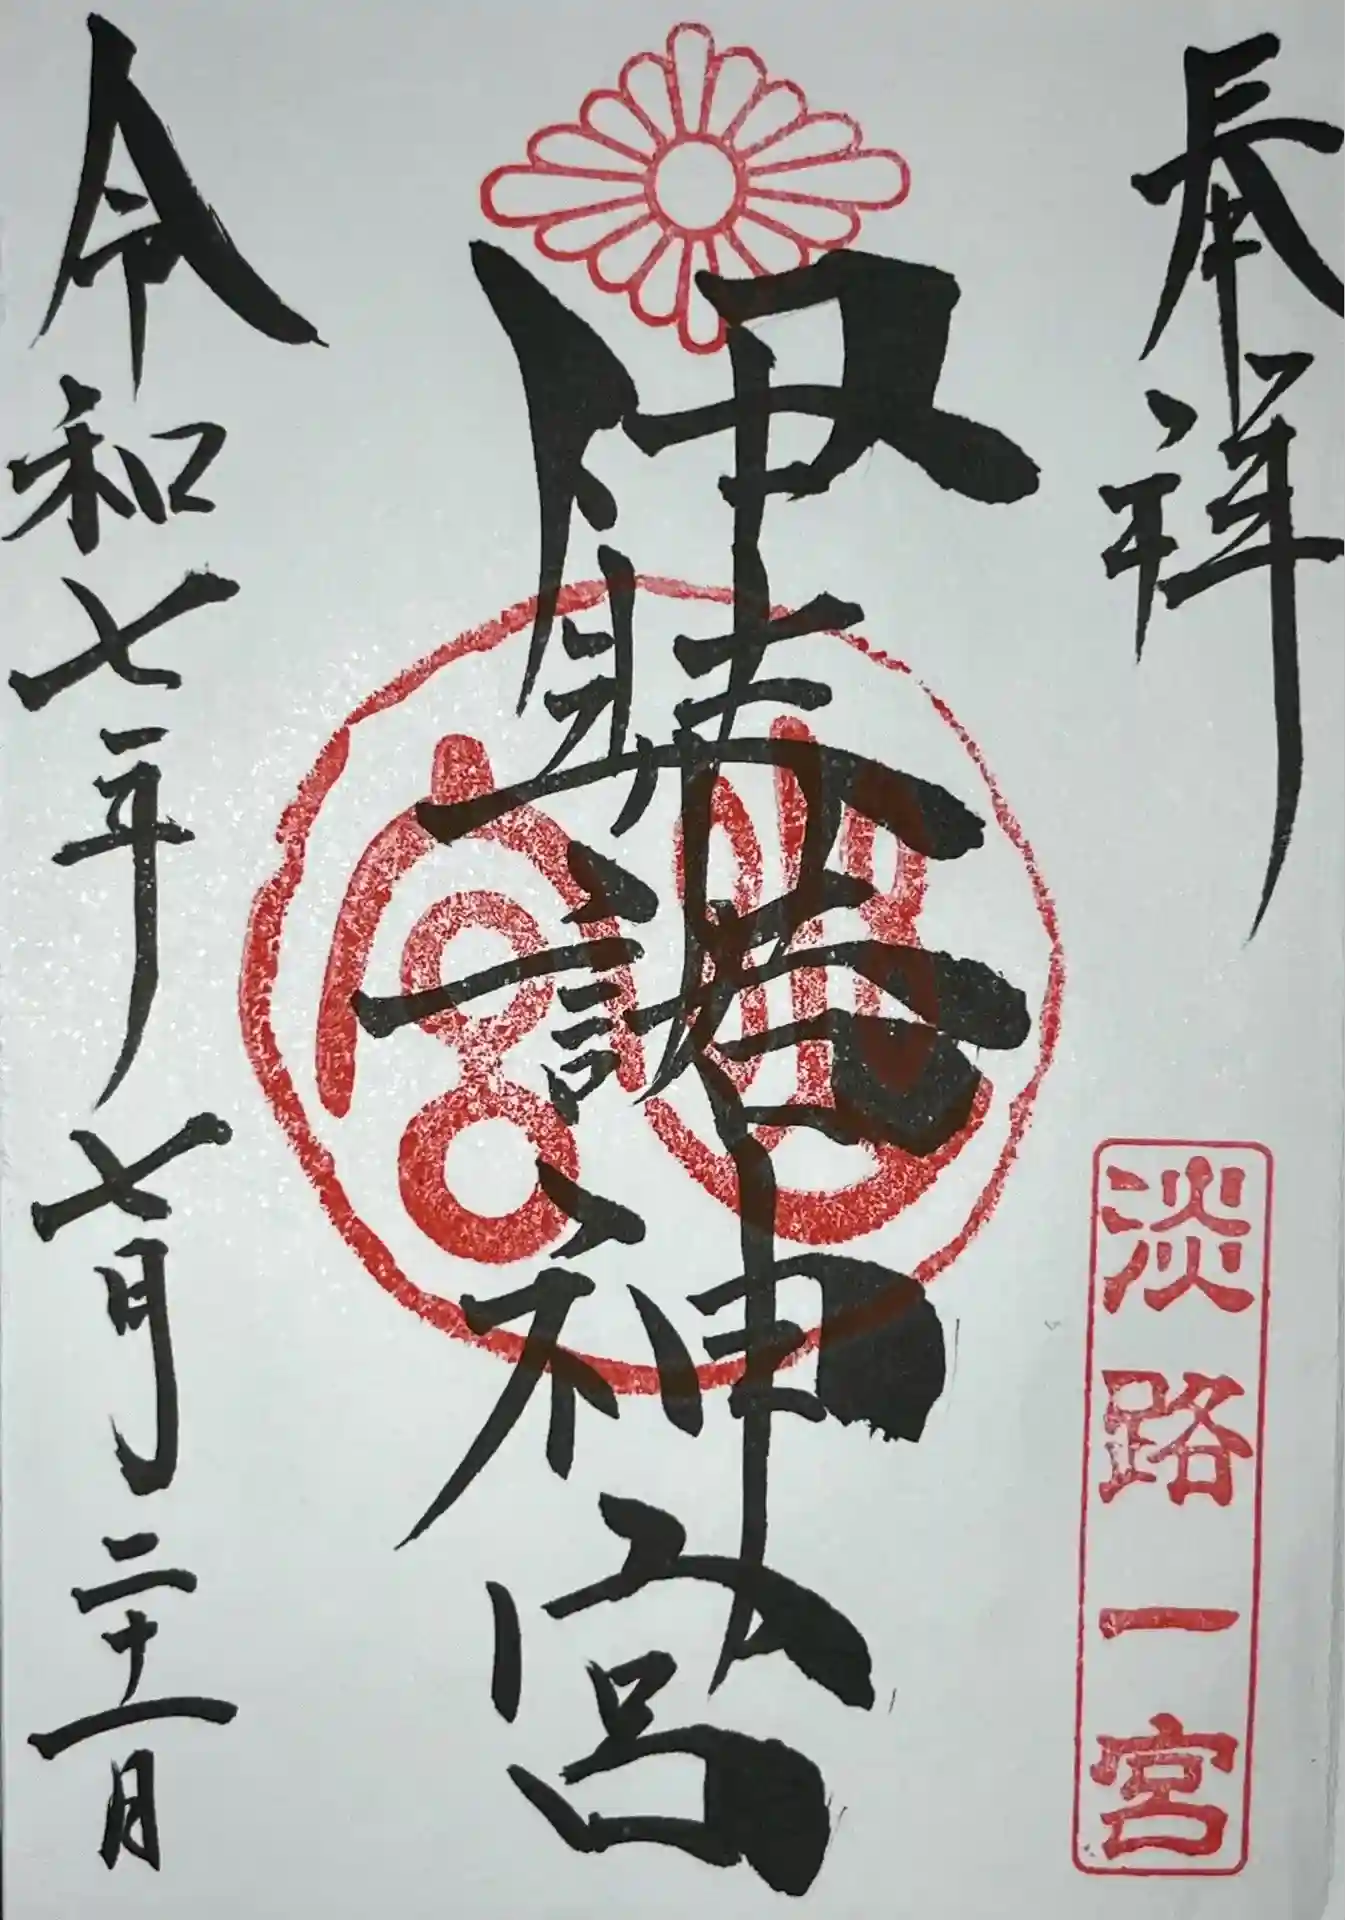 奉拝
淡路一宮
伊弉諾神宮
幽宮
令和七年七月二十一日